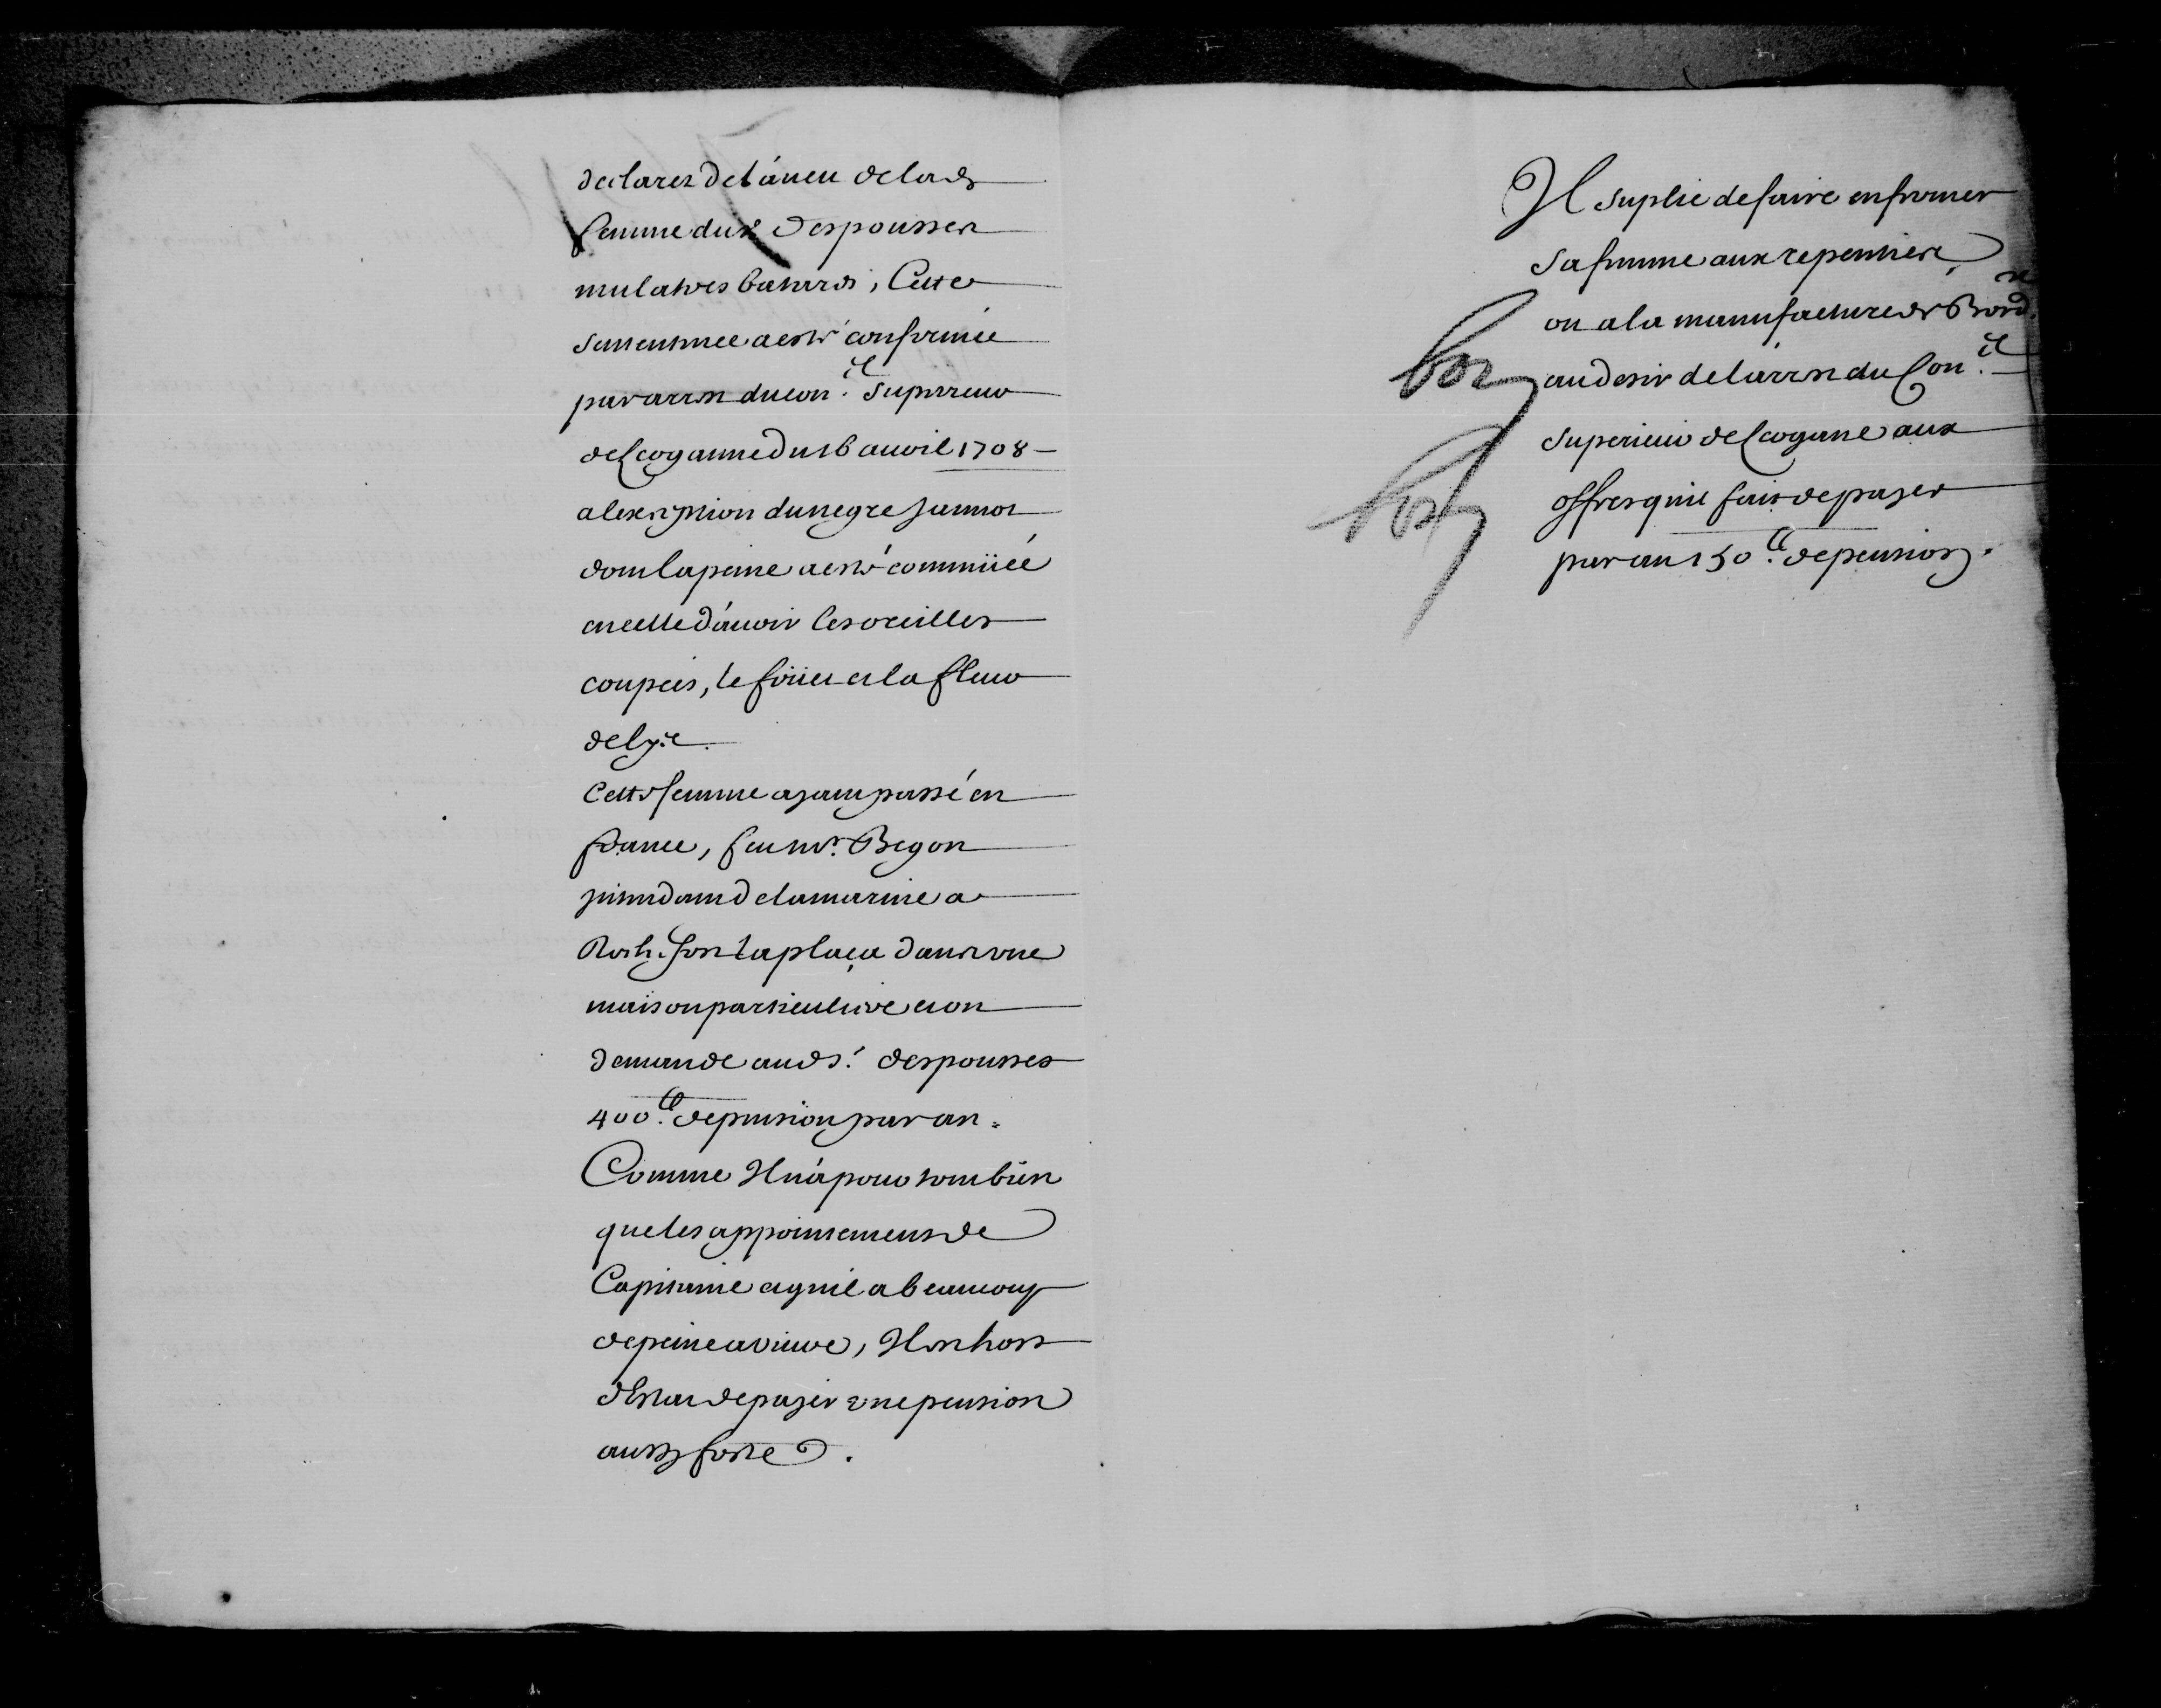 declarez de l'áueu de lad.
femme du s.r Despousses
mulatres batards, Cette
sentence a esté confirmée
par arrest du con.il Superieur
de Leoganne du 16 auril 1708
a lexeption du negre Jannot
dont la peine a esté commüée
en celle d'áuoir les oreilles
coupées, le foüet et la fleur
de lys.
Cette femme ayant passé en
france, feu m.r Begon
jntendant de la marine a
Rochefort la plaça dans vne
maison particuliere et on
demande aud s.r despousses
400.ll de pension par an.
Comme Il n'a pour tout bien
que les appointemens de
Capitaine et qu'il a beaucoup
de peine a viure, Il est hors
d'Estat de payer vne pension
aussy forte.
Il suplie de faire enfermer
sa femme aux repenties
ou a la manufacture de Bord.x
au desir de l'arrest du Con.il
Superieur de Leogane aux
offres qu'il fait de payer
par an 150.ll de pension.
bon